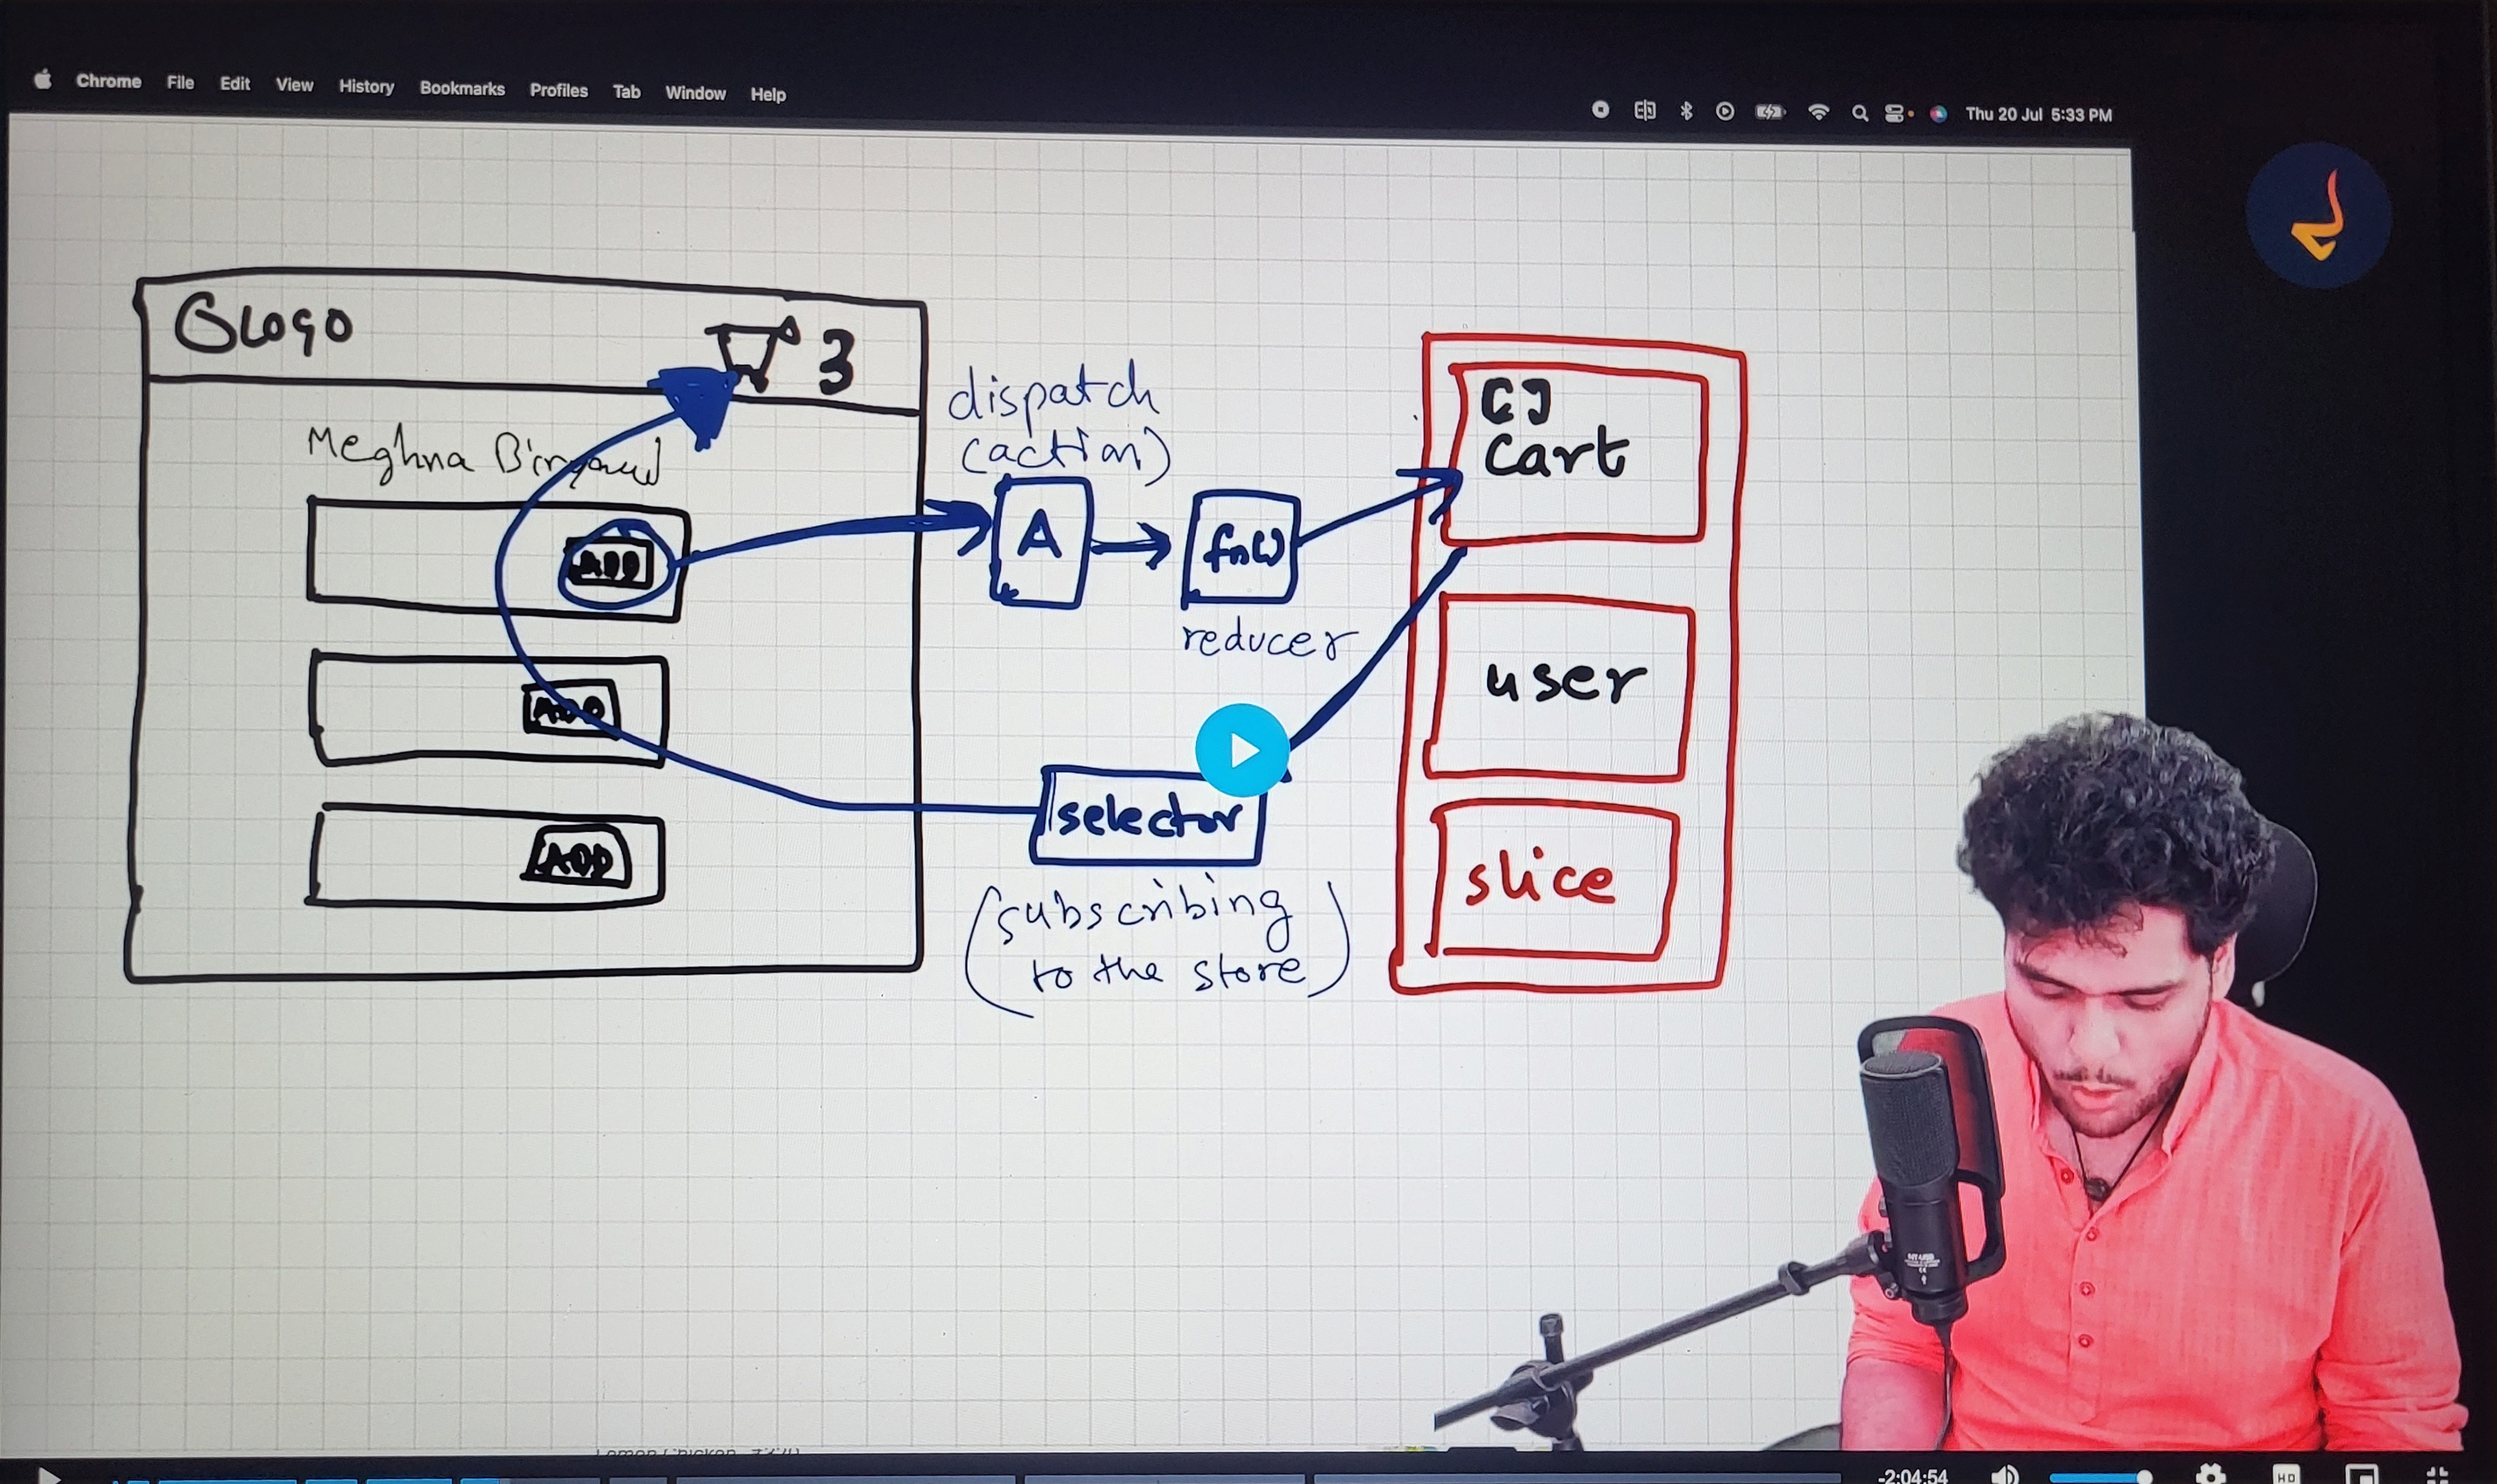 Chrome File Edit View History Bookmarks Profiles Tab Window Help
Thu 20 Jul 5:33 PM
Logo
3
Meghna
ADD
ADD
ADD
dispatch
(action)
A
fn()
reducer
selector
(subscribing
to the store)
[]
Cart
user
slice
-2:04:54
HD